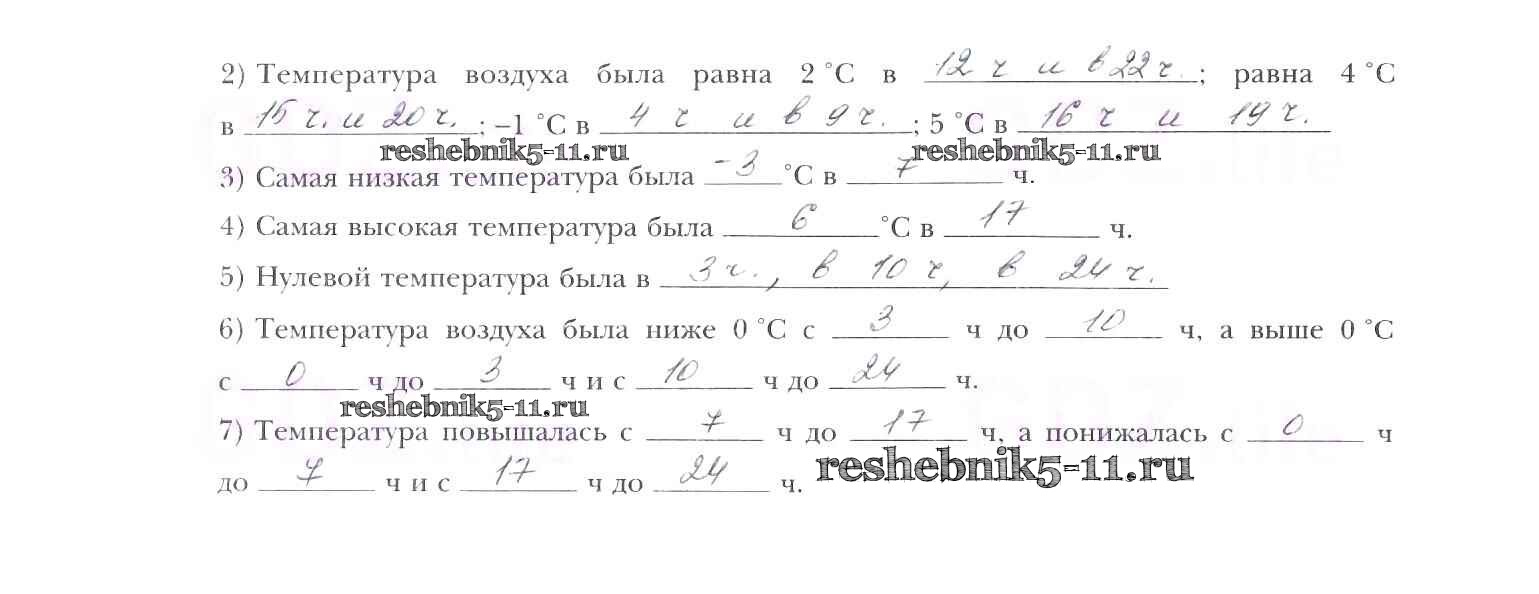 2) Температура воздуха была равна 2 °C в 12 ч и в 22 ч.; равна 4 °C
в 15 ч. и 20 ч.; –1 °C в 4 ч и в 9 ч.; 5 °C в 16 ч и 19 ч.
reshebnik5-11.ru reshebnik5-11.ru
3) Самая низкая температура была -3 °C в 7 ч.
4) Самая высокая температура была 6 °C в 17 ч.
5) Нулевой температура была в 3 ч., в 10 ч, в 24 ч.
6) Температура воздуха была ниже 0 °C с 3 ч до 10 ч, а выше 0 °C
с 0 ч до 3 ч и с 10 ч до 24 ч.
reshebnik5-11.ru
7) Температура повышалась с 7 ч до 17 ч, а понижалась с 0 ч
до 7 ч и с 17 ч до 24 ч. reshebnik5-11.ru